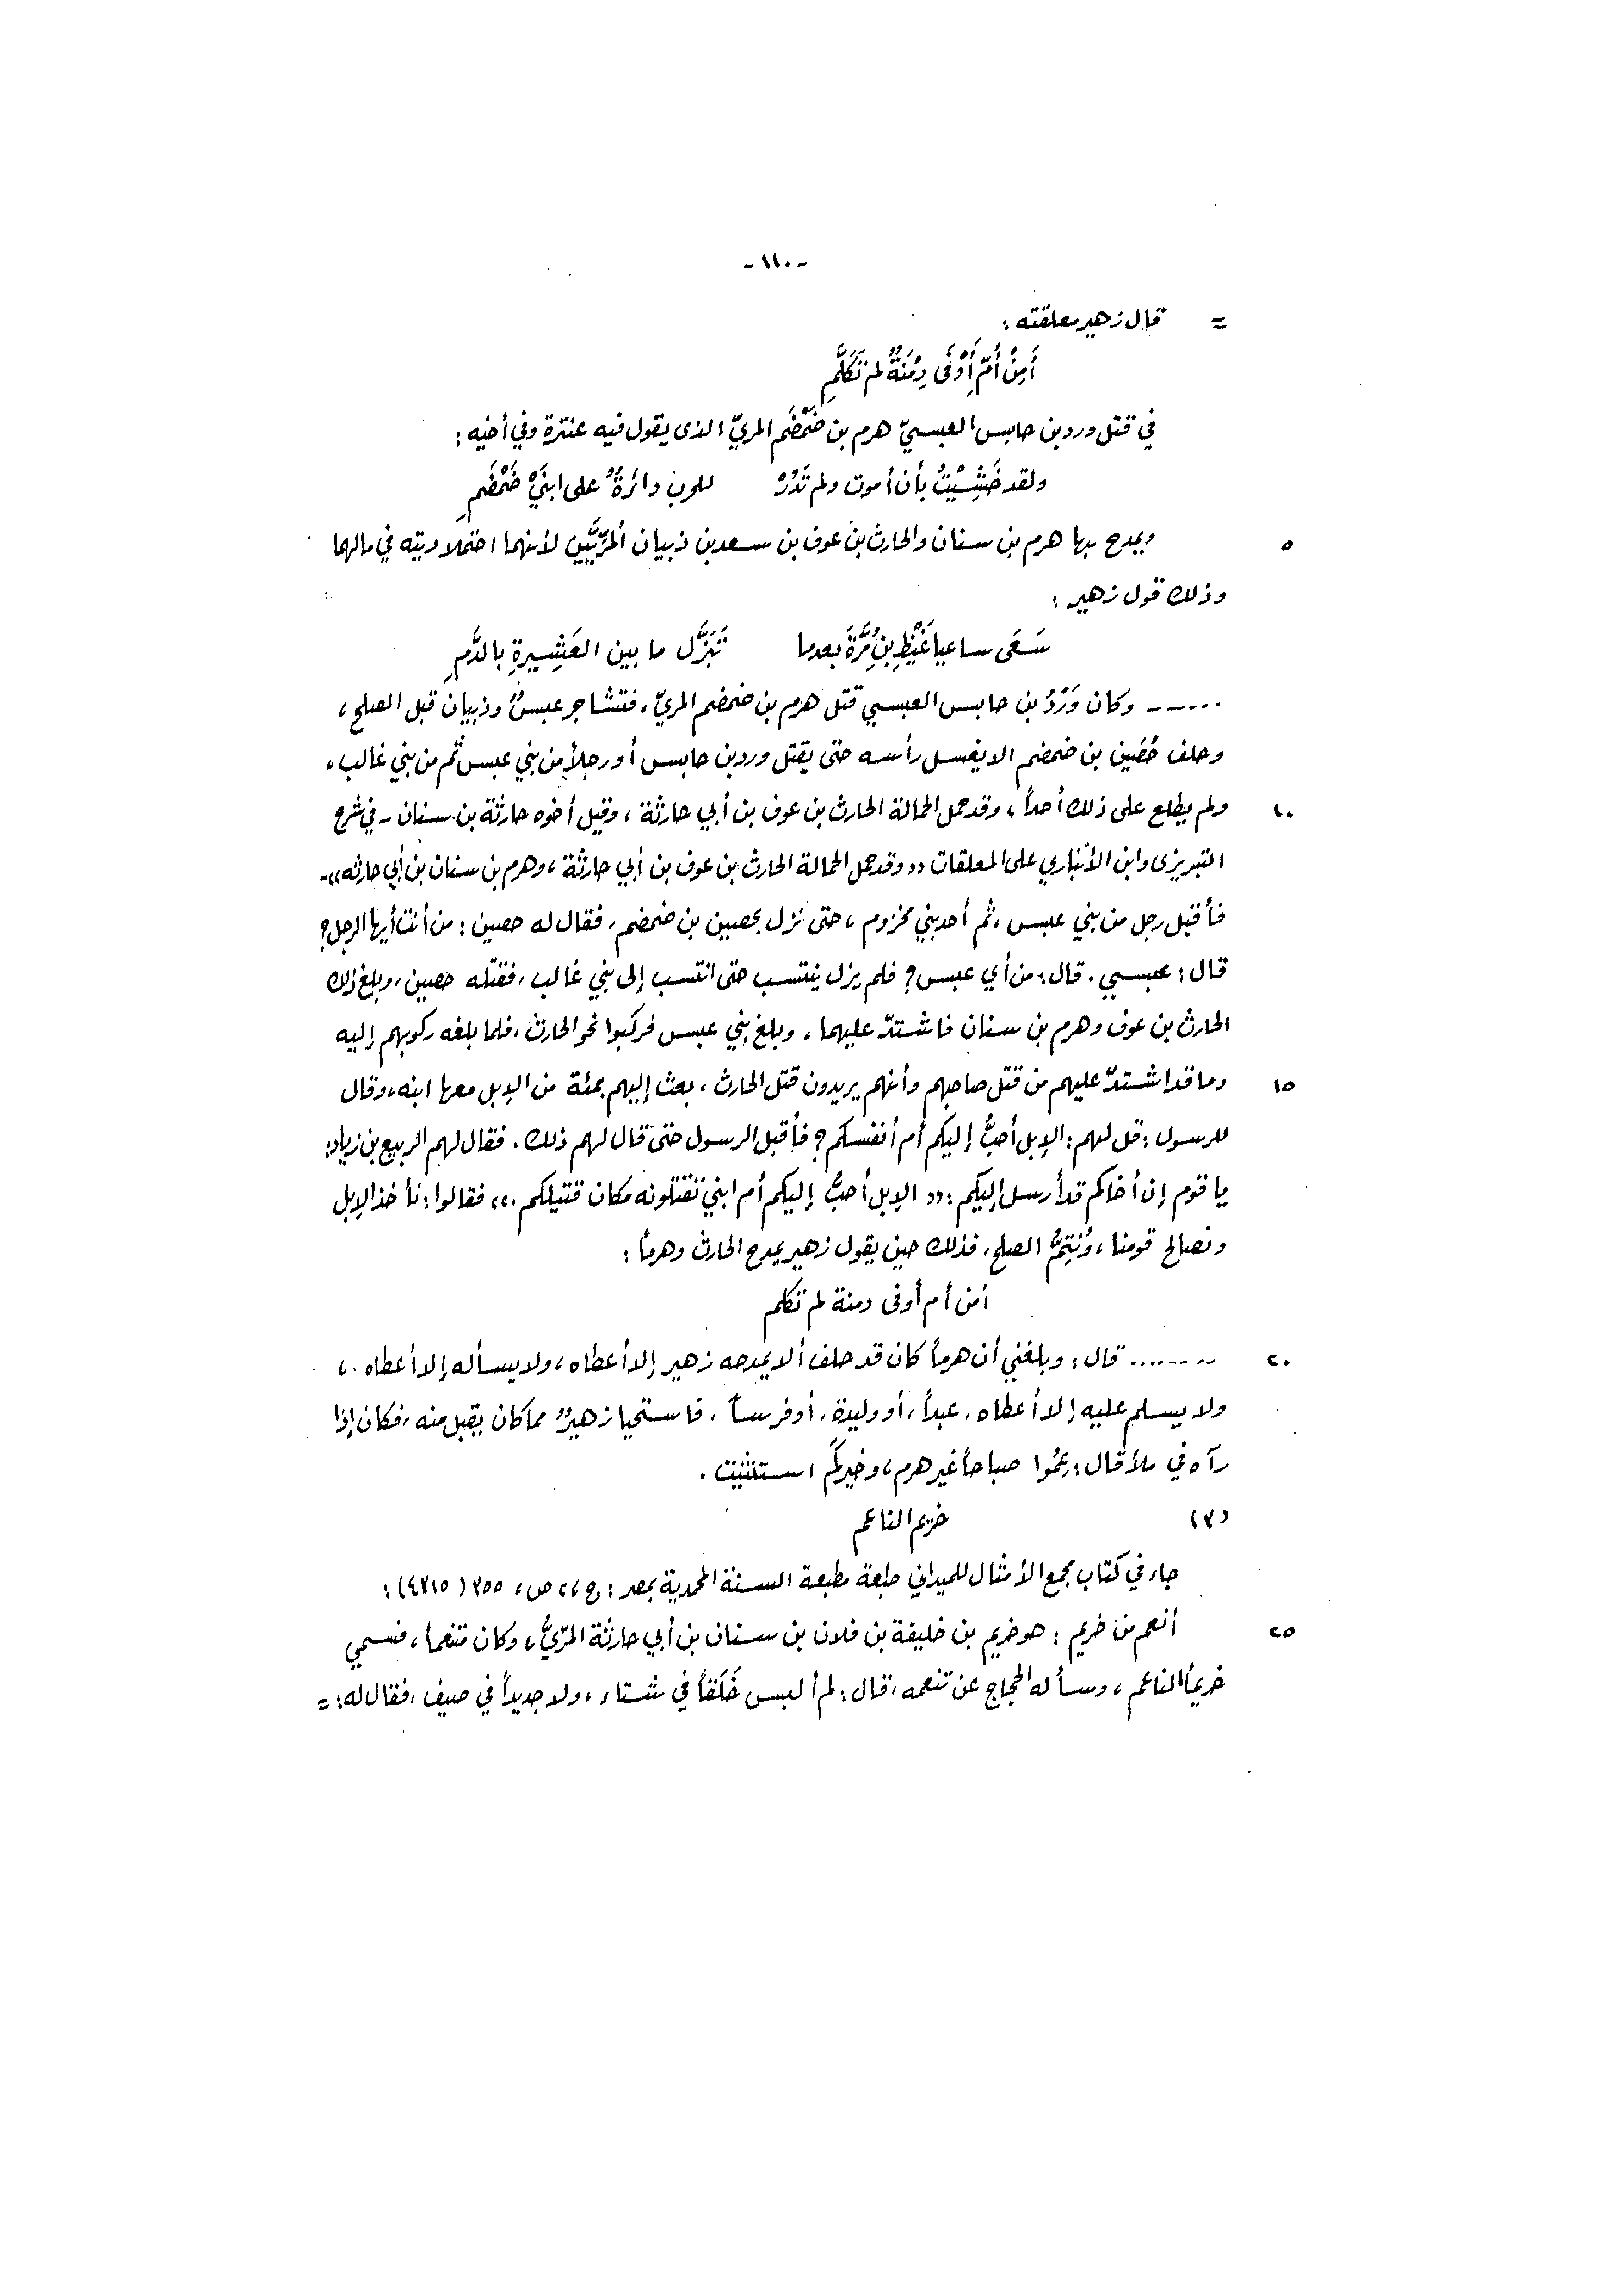 -١١٠-
= قال زهير معلقته :
أَمِنْ أُمِّ أَوْفَى دِمْنَةٌ لم تَكَلَّمِ
في قتل ورد بن حابس العبسيّ هرم بن ضَمْضَم المريّ الذى يقول فيه عنترة وفي أخيه :
ولقد خَشِيْتُ بأن أموت ولم تَدُرْ للحرب دائرةٌ على ابنَيْ ضَمْضَمِ
٥ ويمدح بها هرم بن سنان والحارث بن عوف بن سعد بن ذبيان اُلمرِّيَّين لأنهما احتملا ديته في مالهما
وذلك قول زهير :
سَعَى ساعيا غَيْظِ بن مُرَّةَ بعدما تَبَزَّل ما بين العَشِيرةِ بالدَّمِ
------ وكان وَرْدُ بن حابس العبسي قتل هرم بن ضمضم المريّ، فتشاجر عبسٌ وذبيان قبل الصلح،
وحلف حُصَين بن ضمضم الا يغسل رأسه حتى يقتل ورد بن حابس أو رجلاً من بني عبس ثم من بني غالب،
١٠ ولم يطلع على ذلك أحداً، وقد حمل الحمالة الحارث بن عوف بن أبي حارثة، وقيل أخوه حارثة بن سنان - في شرح
التبريزى وابن الأنباري على المعلقات «وقد حمل الحمالة الحارث بن عوف بن أبي حارثة، وهرم بن سنان بن أبي حارثه» -
فأقبل رجل من بني عبس، ثم أحد بني مخزوم، حتى نزل بحصين بن ضمضم، فقال له حصين : من أنت أيها الرجل؟
قال : عبسي. قال : من أي عبس؟ فلم يزل ينتسب حتى انتسب إلى بني غالب، فقتله حصين، وبلغ ذلك
الحارث بن عوف وهرم بن سنان فاشتدّ عليهما، وبلغ بني عبس فركبوا نحو الحارث، فلما بلغه ركوبهم إليه
١٥ وما قد اشتدّ عليهم من قتل صاحبهم وأنهم يريدون قتل الحارث، بعث إليهم بمئة من الإبل معها ابنه، وقال
للرسول : قل لهم : الإبل أحبُّ إليكم أم أنفسكم؟ فأقبل الرسول حتى قال لهم ذلك. فقال لهم الربيع بن زياد:
يا قوم إن أخاكم قد أرسل إليكم : «الإبل أحبُّ إليكم أم ابني تقتلونه مكان قتيلكم.» فقالوا : نأخذ الإبل
ونصالح قومنا، ونُتِمُّ الصلح، فذلك حين يقول زهير يمدح الحارث وهرماً :
أمن أم أوفى دمنة لم تكلم
٢٠ -------- قال : وبلغني أن هرماً كان قد حلف ألا يمدحه زهير إلا أعطاه، ولا يسأله إلا أعطاه،
ولا يسلم عليه إلا أعطاه، عبداً، أو وليدة، أو فرساً، فاستحيا زهيرٌ مما كان يقبل منه، فكان إذا
رآه في ملأ قال : عِمُوا صباحاً غير هرم، وخيرَكم استثنيت.
(٣) خريم الناعم
جاء في كتاب مجمع الأمثال للميداني طبعة مطبعة السنة المحمدية بمصر : ج ٢، ص، ٣٥٥ (٤٣١٥) :
٢٥ أنعم من خريم : هو خريم بن خليفة بن فلان بن سنان بن أبي حارثة المرّيُّ، وكان متنعماً، فسمي
خريماً الناعم، وسأله الحجاج عن تنعمه، قال : لم ألبس خَلَقاً في شتاء، ولا جديداً في صيف، فقال له : =